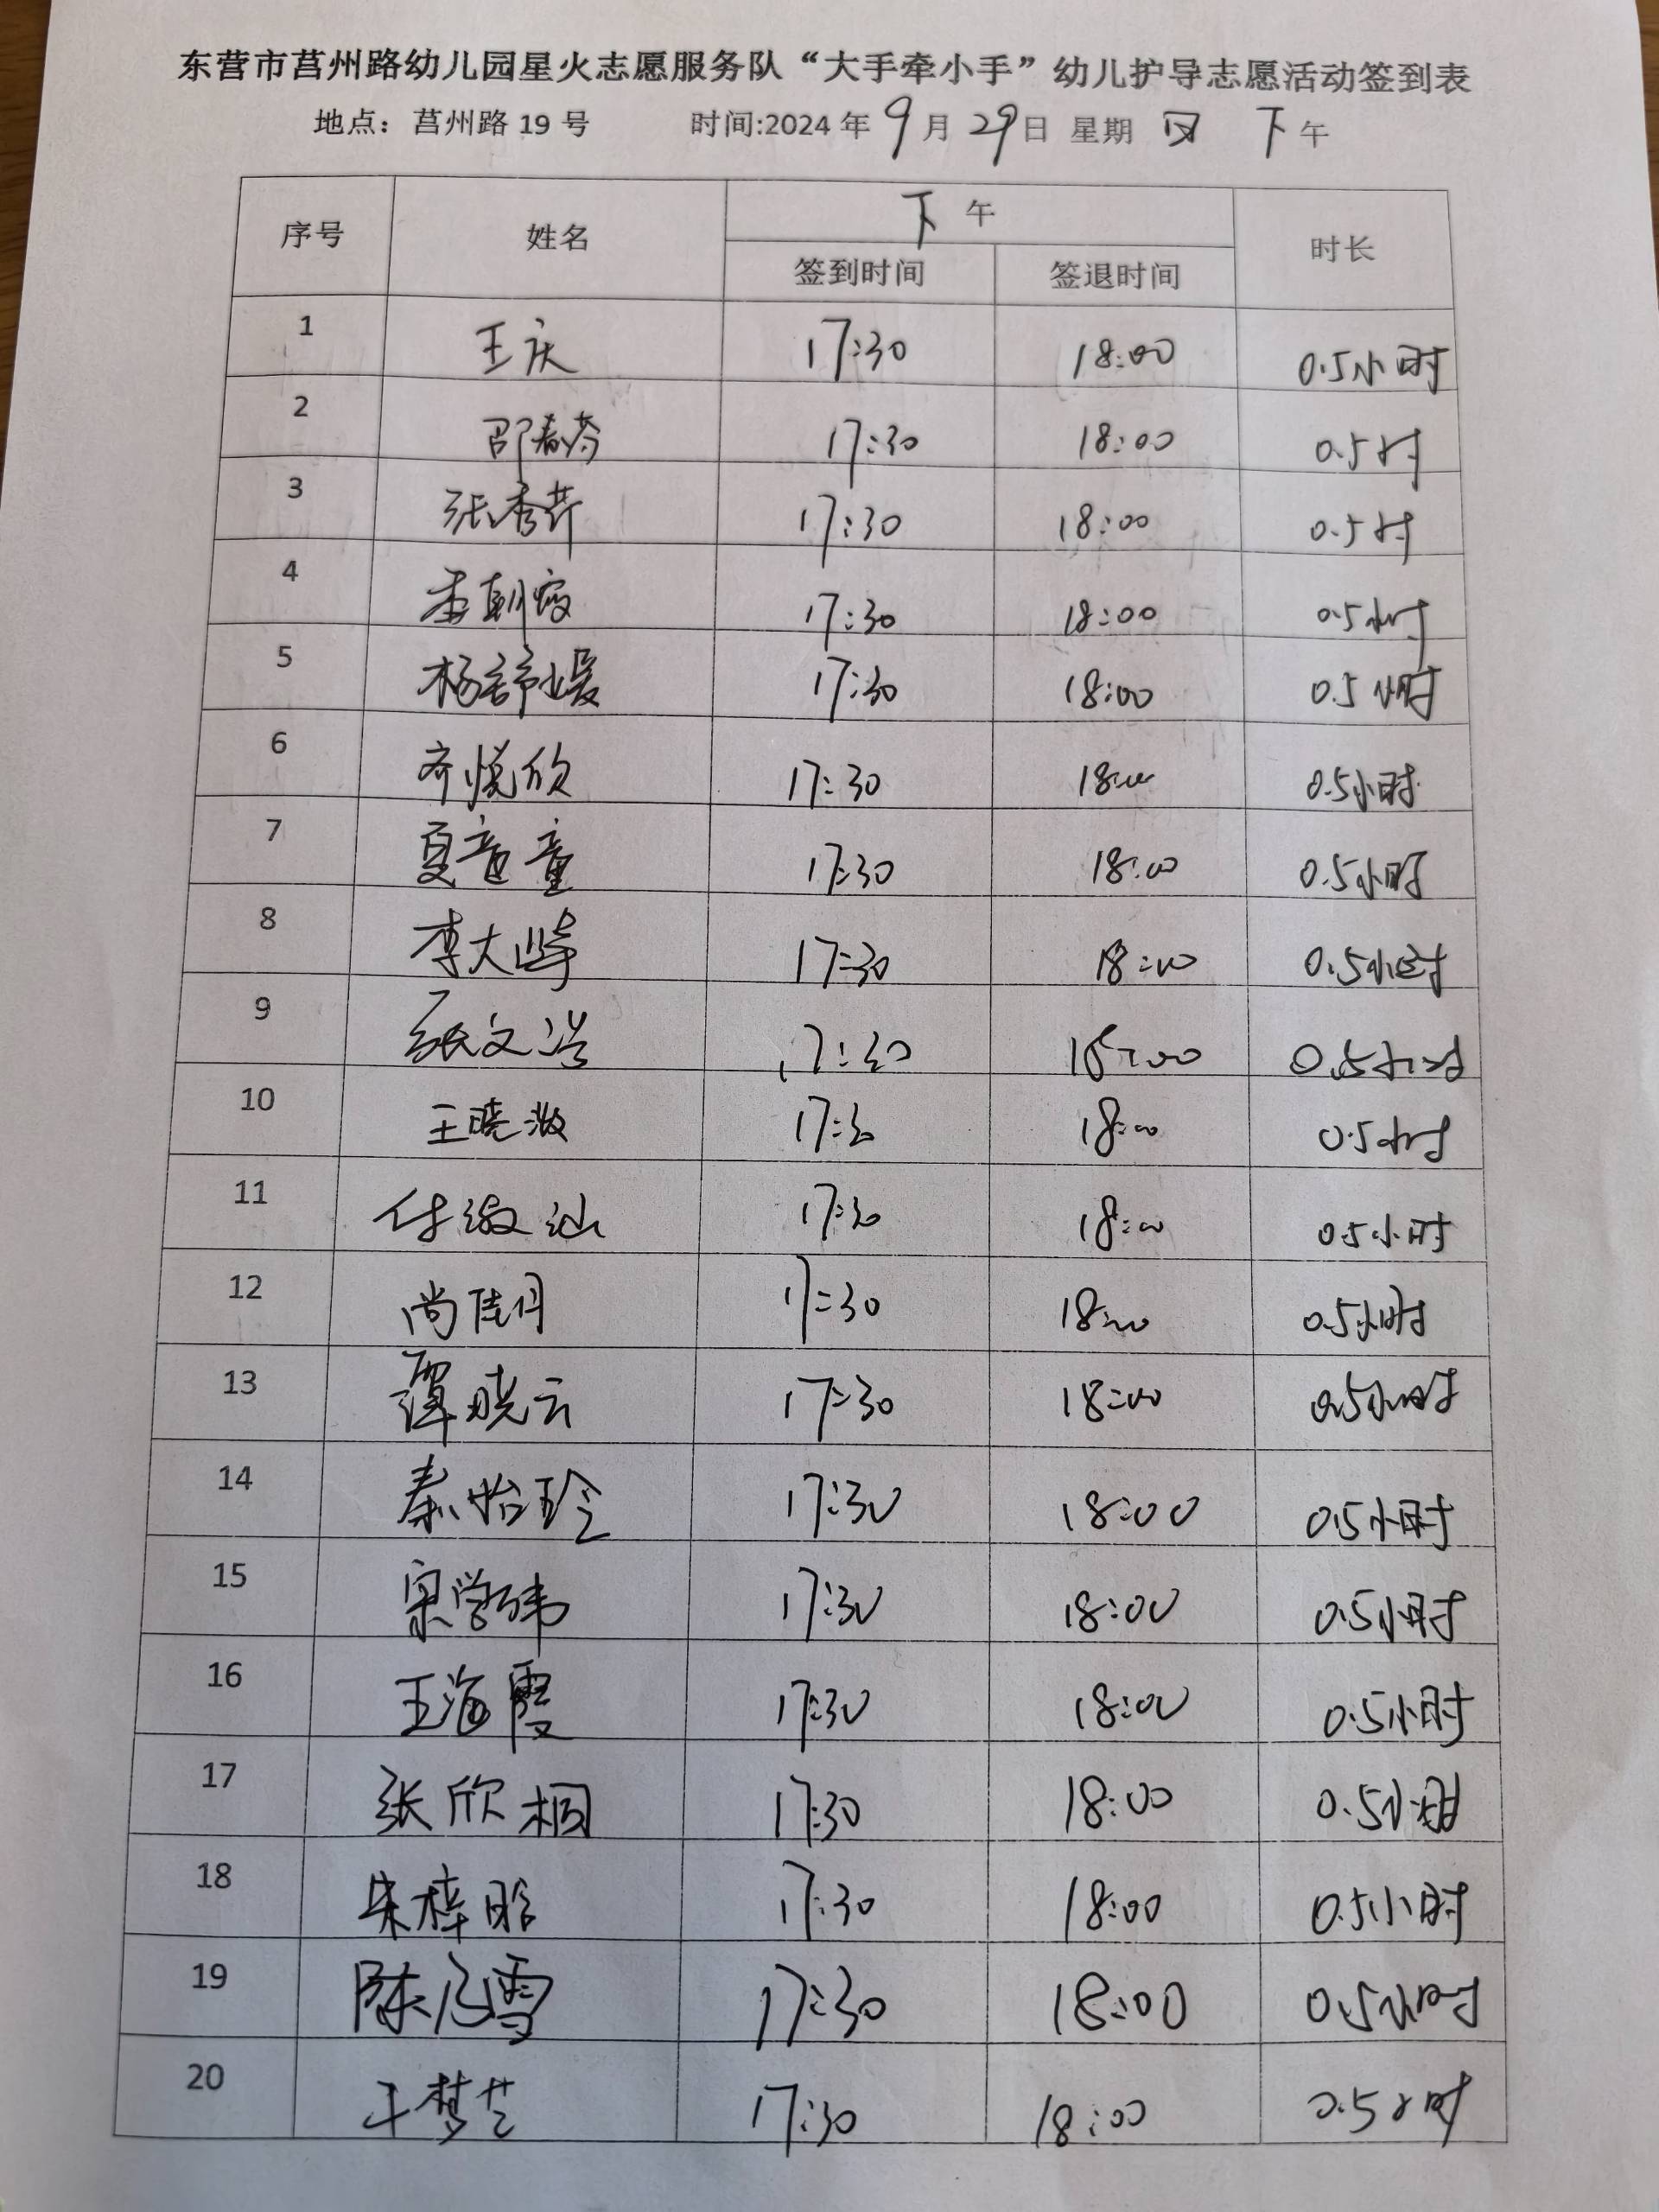 东营市莒州路幼儿园星火志愿服务队“大手牵小手”幼儿护导志愿活动签到表
地点：莒州路 19 号 时间:2024 年 9 月 29 日 星期 日 下 午
序号 姓名 下 午 时长
签到时间 签退时间
1 王庆 17:30 18:00 0.5小时
2 邵春芬 17:30 18:00 0.5时
3 张秀芹 17:30 18:00 0.5时
4 李朝霞 17:30 18:00 0.5小时
5 杨舒媛 17:30 18:00 0.5小时
6 齐悦欣 17:30 18:00 0.5小时
7 夏童 17:30 18:00 0.5小时
8 李大峰 17:30 18:00 0.5小时
9 张文浩 17:30 18:00 0.5小时
10 王晓 17:30 18:00 0.5小时
11 付汕 17:30 18:00 0.5小时
12 尚佳丹 17:30 18:00 0.5小时
13 谭晓云 17:30 18:00 0.5小时
14 秦怡玲 17:30 18:00 0.5小时
15 宋学玮 17:30 18:00 0.5小时
16 王海霞 17:30 18:00 0.5小时
17 张欣桐 17:30 18:00 0.5小时
18 朱梓晗 17:30 18:00 0.5小时
19 陈乃雪 17:30 18:00 0.5小时
20 梦芝 17:30 18:00 0.5小时